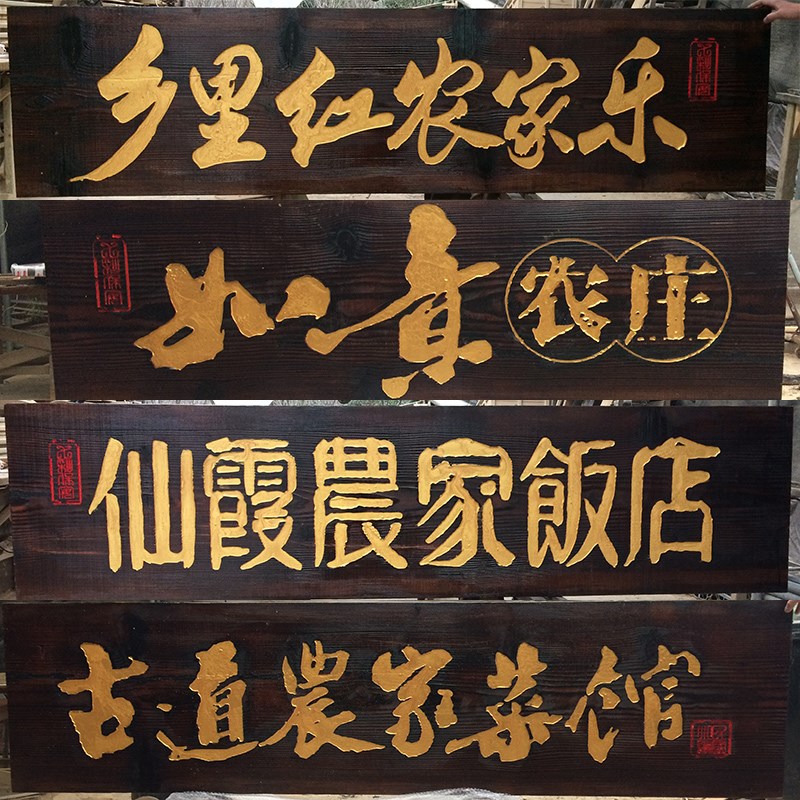 乡里红农家乐
如意农庄
仙霞農家飯店
古道農家菜馆